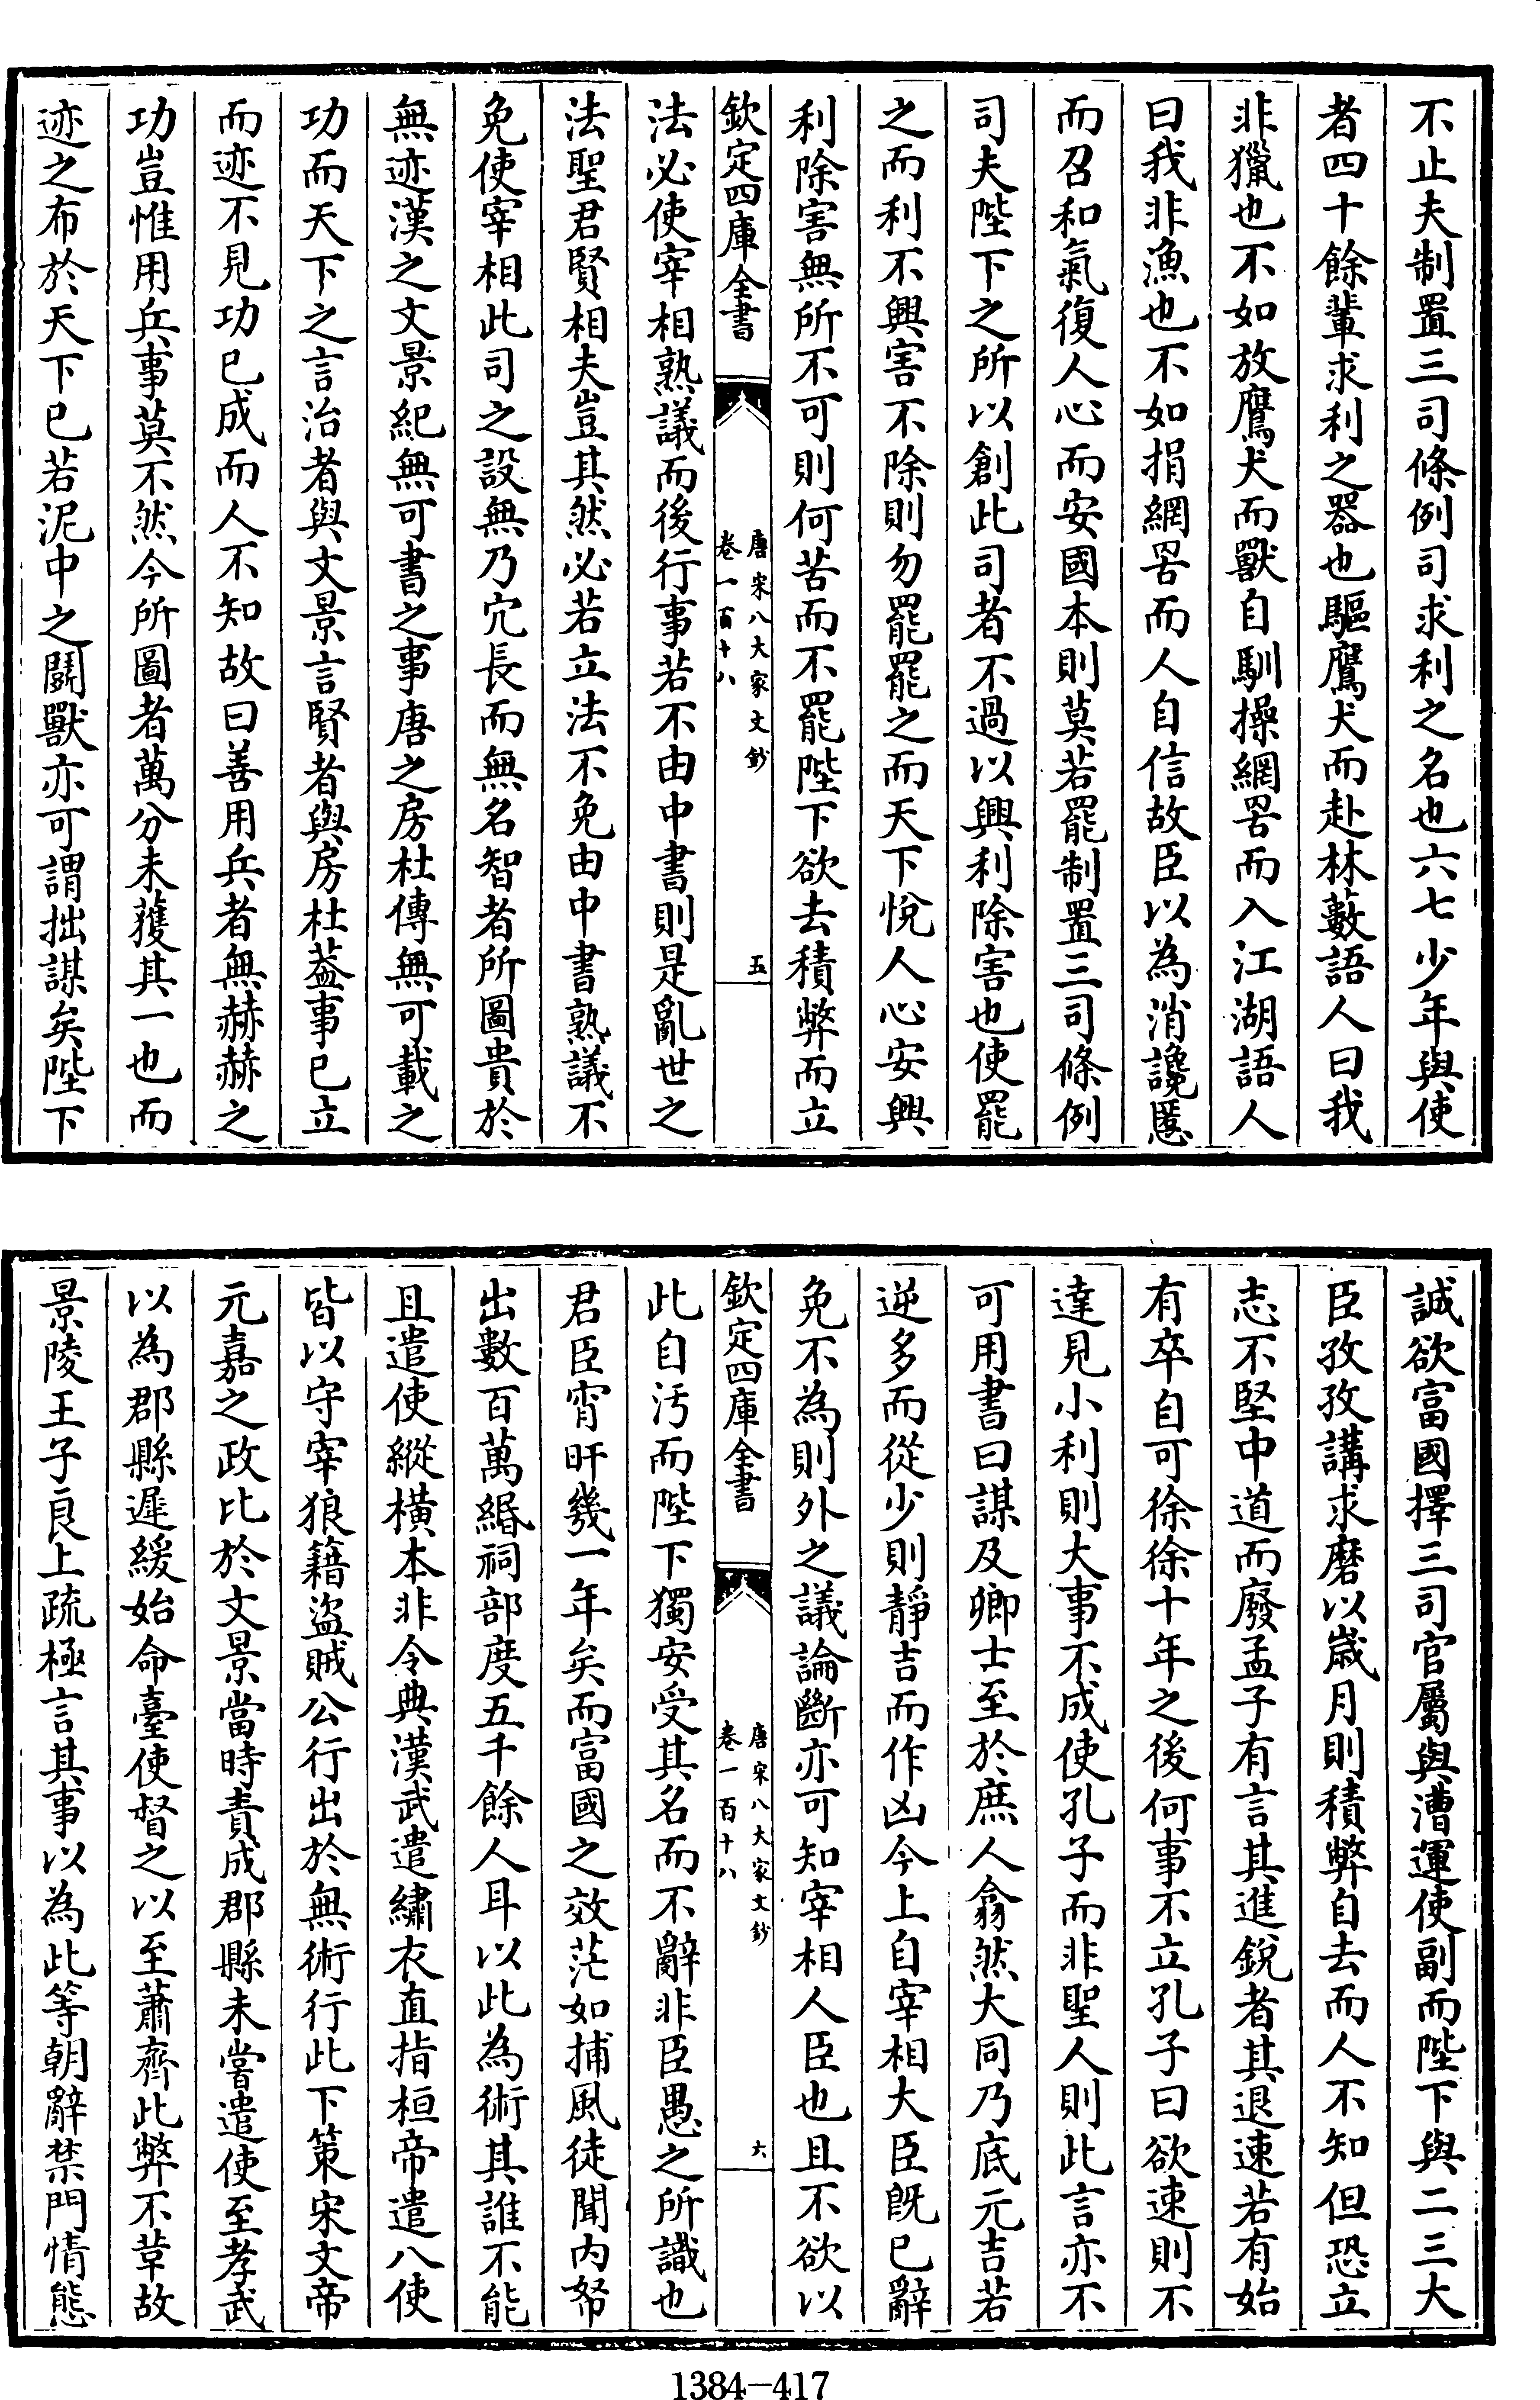 不止夫制置三司條例司求利之名也六七少年與使
者四十餘輩求利之器也驅鷹犬而赴林藪語人曰我
非獵也不如放鷹犬而獸自馴操網罟而入江湖語人
曰我非漁也不如捐網罟而人自信故臣以為消讒慝
而召和氣復人心而安國本則莫若罷制置三司條例
司夫陛下之所以創此司者不過以興利除害也使罷
之而利不興害不除則勿罷罷之而天下悅人心安興
利除害無所不可則何苦而不罷陛下欲去積弊而立
欽定四庫全書
唐宋八大家文鈔
卷一百十八
五
法必使宰相熟議而後行事若不由中書則是亂世之
法聖君賢相夫豈其然必若立法不免由中書熟議不
免使宰相此司之設無乃冗長而無名智者所圖貴於
無迹漢之文景紀無可書之事唐之房杜傳無可載之
功而天下之言治者與文景言賢者與房杜葢事已立
而迹不見功已成而人不知故曰善用兵者無赫赫之
功豈惟用兵事莫不然今所圖者萬分未獲其一也而
迹之布於天下已若泥中之鬭獸亦可謂拙謀矣陛下
誠欲富國擇三司官屬與漕運使副而陛下與二三大
臣孜孜講求磨以歲月則積弊自去而人不知但恐立
志不堅中道而廢孟子有言其進銳者其退速若有始
有卒自可徐徐十年之後何事不立孔子曰欲速則不
達見小利則大事不成使孔子而非聖人則此言亦不
可用書曰謀及卿士至於庶人翕然大同乃底元吉若
逆多而從少則靜吉而作凶今上自宰相大臣旣已辭
免不為則外之議論斷亦可知宰相人臣也且不欲以
欽定四庫全書
唐宋八大家文鈔
卷一百十八
六
此自汚而陛下獨安受其名而不辭非臣愚之所識也
君臣宵旰幾一年矣而富國之效茫如捕風徒聞內帑
出數百萬緡祠部度五千餘人耳以此為術其誰不能
且遣使縱橫本非令典漢武遣繡衣直指桓帝遣八使
皆以守宰狼籍盜賊公行出於無術行此下策宋文帝
元嘉之政比於文景當時責成郡縣未嘗遣使至孝武
以為郡縣遲緩始命臺使督之以至蕭齊此弊不革故
景陵王子良上疏極言其事以為此等朝辭禁門情態
1384-417